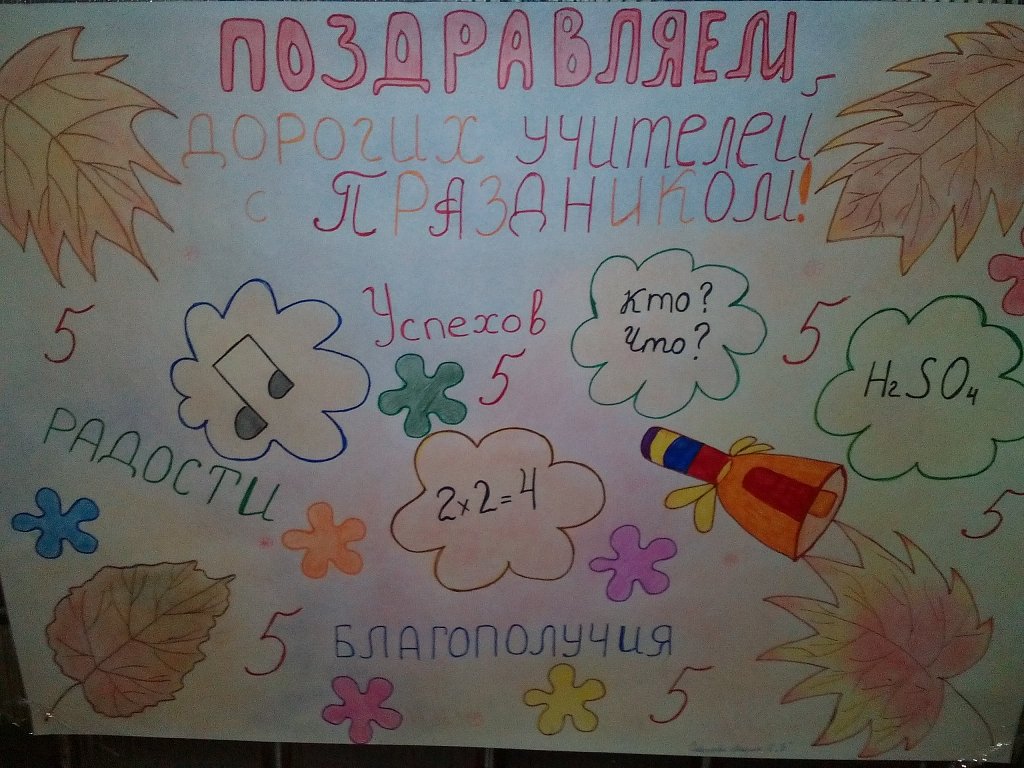 ПОЗДРАВЛЯЕМ
ДОРОГИХ УЧИТЕЛЕЙ
С ПРАЗДНИКОМ!
5
Успехов
5
Кто?
Что?
5
H2SO4
РАДОСТИ
2x2=4
5
5
БЛАГОПОЛУЧИЯ
5